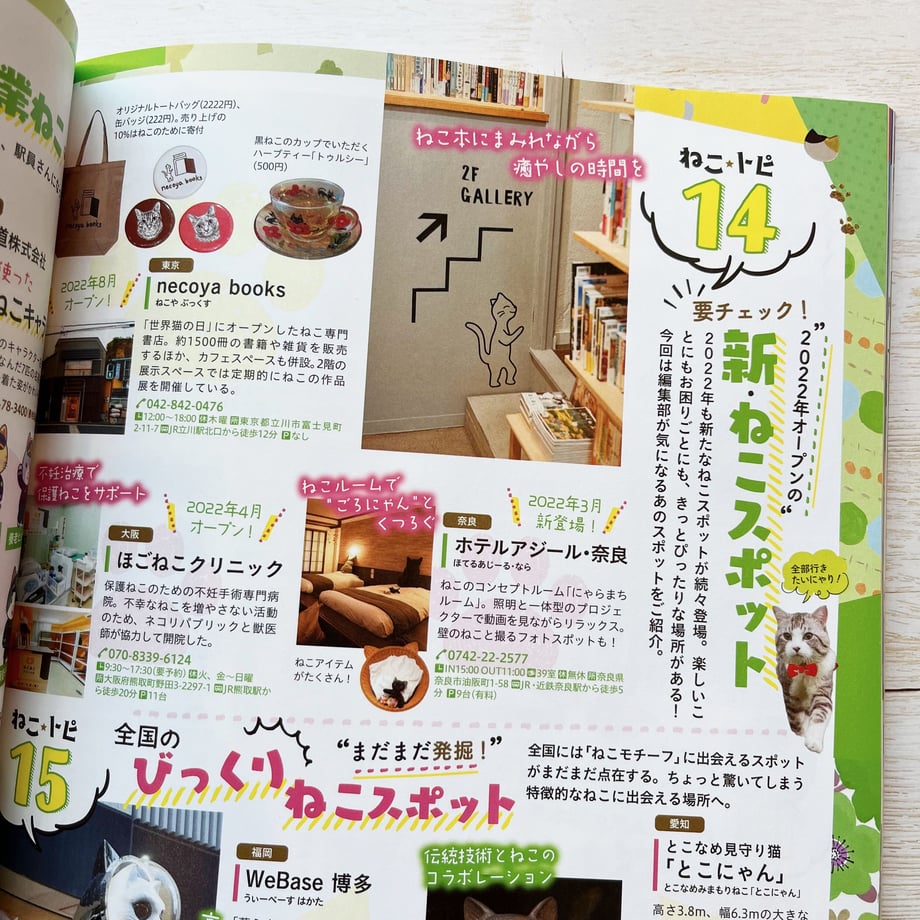 業ねこ
、駅員さんにな
道株式会社
使った
ねこキャ
のキャラクター
なんだ7匹の
着た姿がかわ
78-3400
ねこ★トピ
14
要チェック！
"2022年オープンの"
新・ねこスポット
2022年も新たなねこスポットが続々登場。楽しいこ
とにもお困りごとにも、きっとぴったりな場所がある！
今回は編集部が気になるあのスポットをご紹介。
全部行き
たいにゃり！
ねこ本にまみれながら
癒やしの時間を
2F
GALLERY
オリジナルトートバッグ(2222円)、
缶バッジ(222円)。売り上げの
10%はねこのために寄付
黒ねこのカップでいただく
ハーブティー「トゥルシー」
(500円)
necoya books
necoya books
2022年8月
オープン！
東京
necoya books
ねこや ぶっくす
「世界猫の日」にオープンしたねこ専門
書店。約1500冊の書籍や雑貨を販売
するほか、カフェスペースも併設。2階の
展示スペースでは定期的にねこの作品
展を開催している。
042-842-0476
12:00〜18:00 休木曜 所東京都立川市富士見町
2-11-7 JR立川駅北口から徒歩12分 Pなし
不妊治療で
保護ねこをサポート
2022年4月
オープン！
大阪
ほごねこクリニック
保護ねこのための不妊手術専門病
院。不幸なねこを増やさない活動
のため、ネコリパブリックと獣医
師が協力して開院した。
070-8339-6124
9:30〜17:30(要予約) 休火、金〜日曜
所大阪府熊取町野田3-2297-1 JR熊取駅か
ら徒歩20分 P11台
ねこルームで
"ごろにゃん"と
くつろぐ
ねこアイテム
がたくさん！
2022年3月
新登場！
奈良
ホテルアジール・奈良
ほてるあじーる・なら
ねこのコンセプトルーム「にゃらまち
ルーム」。照明と一体型のプロジェ
クターで動画を見ながらリラックス。
壁のねこと撮るフォトスポットも！
0742-22-2577
IN15:00 OUT11:00 39室 休無休 所奈良県
奈良市油阪町1-58 JR・近鉄奈良駅から徒歩5
分 P9台(有料)
ねこ★トピ
15
全国の
"まだまだ発掘！"
びっくり
ねこスポット
全国には「ねこモチーフ」に出会えるスポット
がまだまだ点在する。ちょっと驚いてしまう
特徴的なねこに出会える場所へ。
福岡
WeBase 博多
うぃーべーす はかた
伝統技術とねこの
コラボレーション
愛知
とこなめ見守り猫
「とこにゃん」
とこなめみまもりねこ「とこにゃん」
高さ3.8m、幅6.3mの大きな